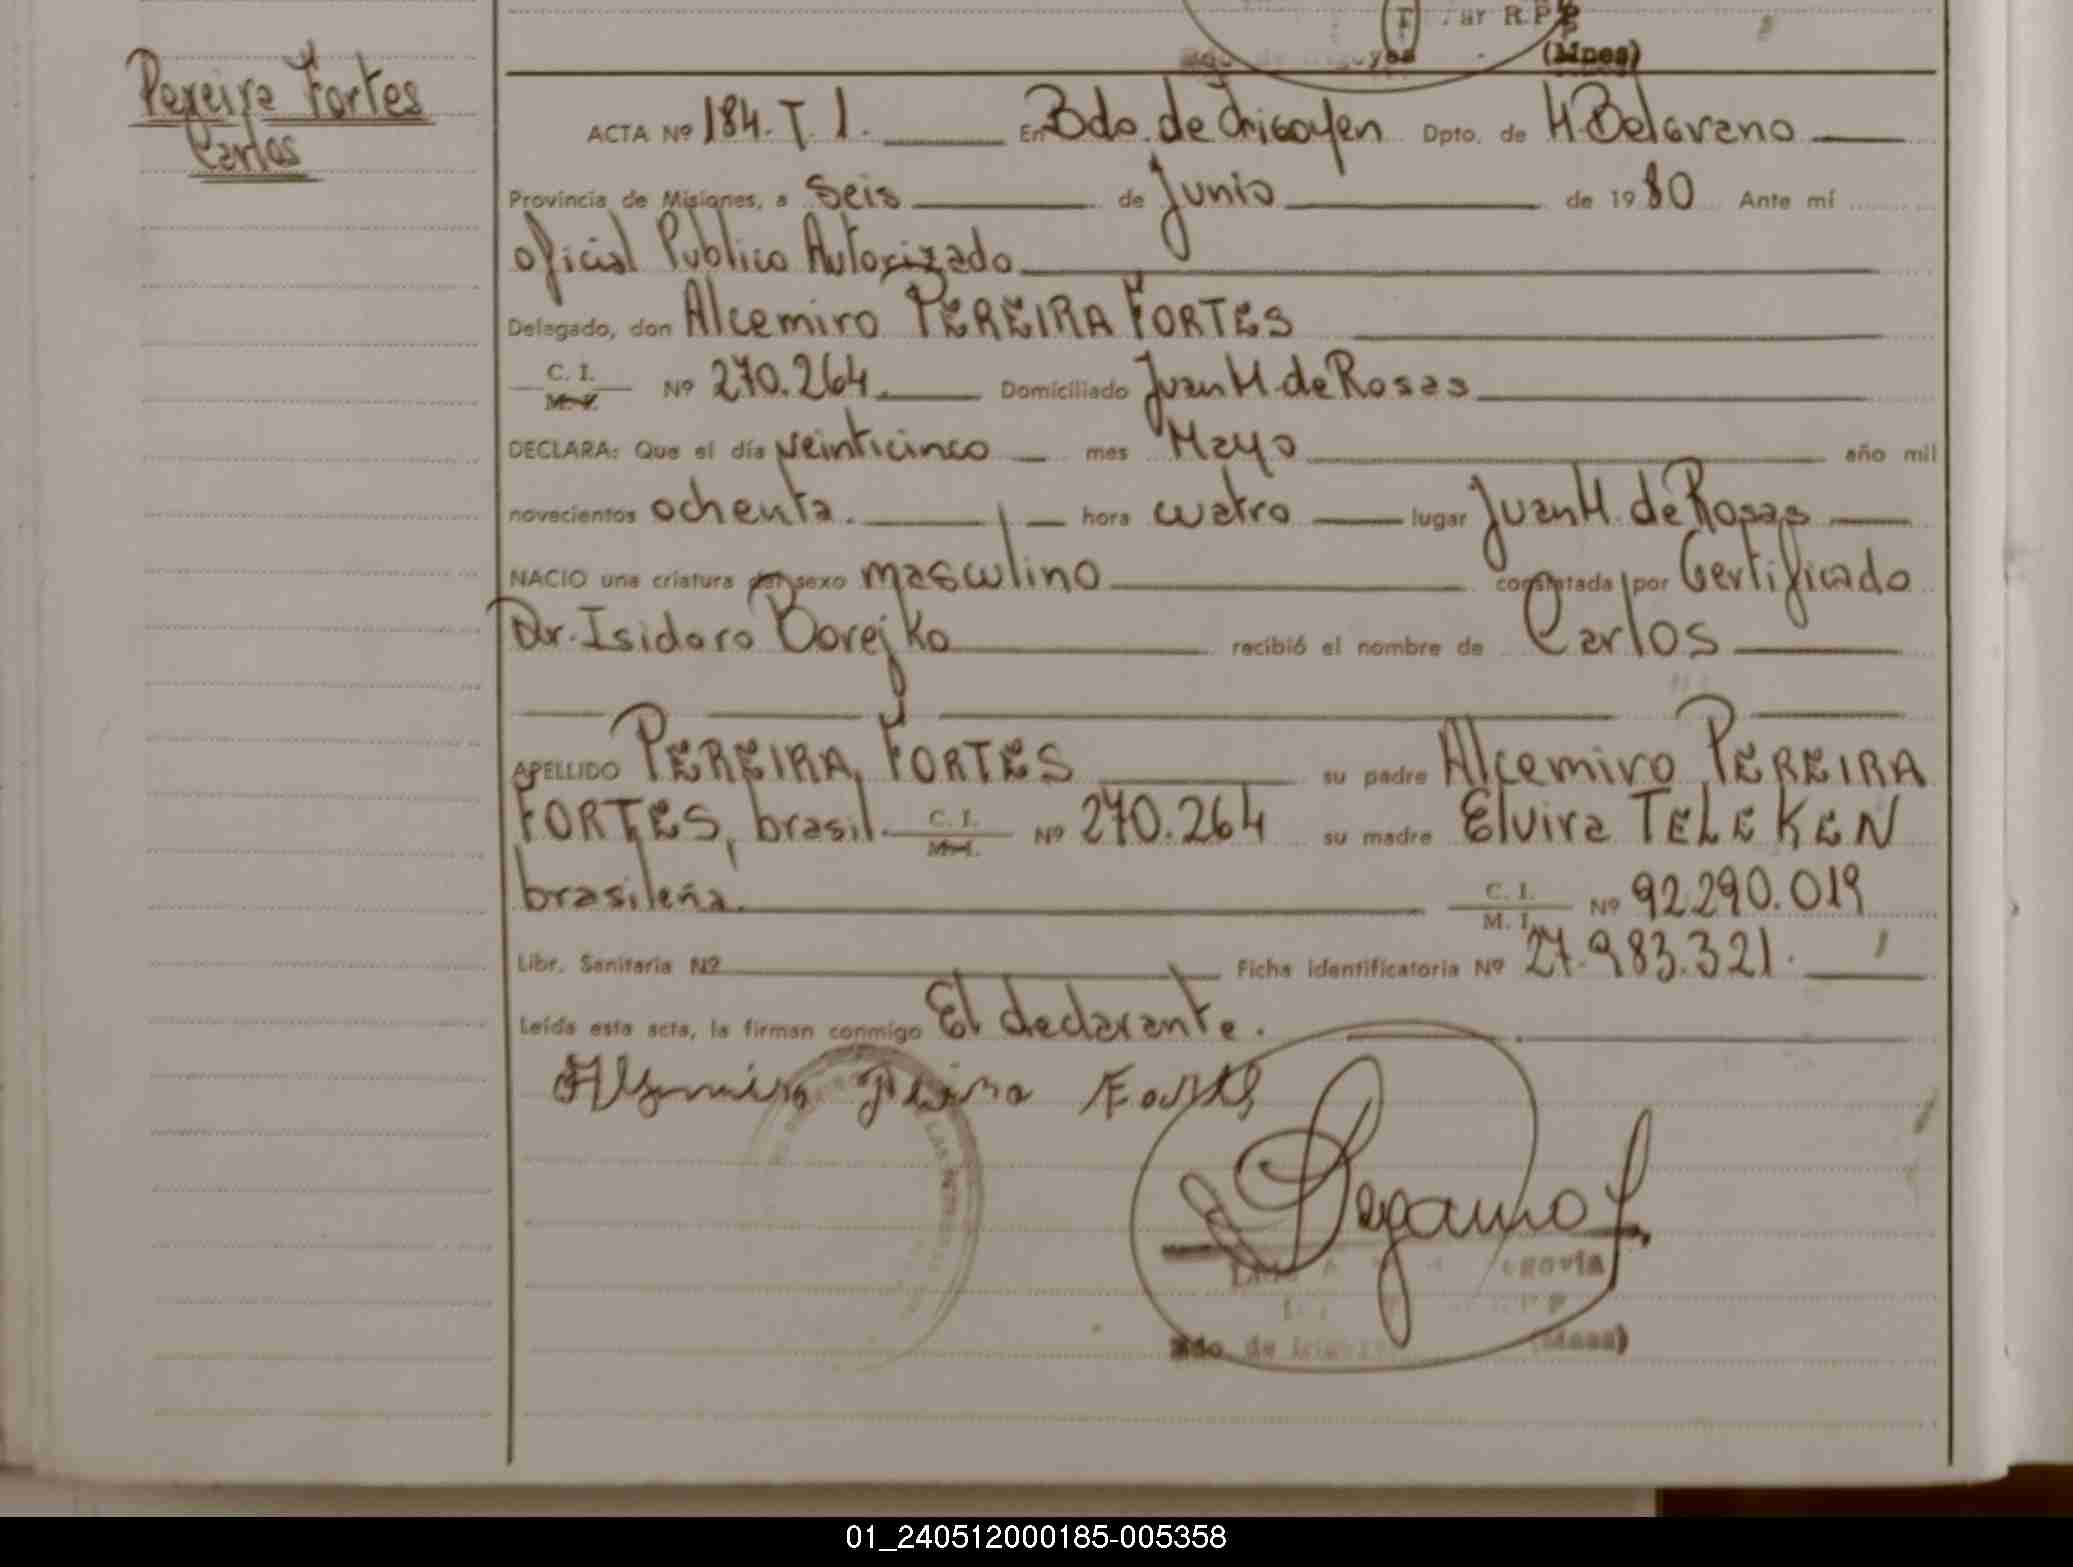 Pereira Fortes
Carlos
ar R.P
(Mnes)
ACTA Nº 184. T. 1. En Bdo. de Irigoyen Dpto. de H. Belgrano
Provincia de Misiones, a seis de Junio de 1980 Ante mí
oficial Publico Autorizado
Delegado, don Alcemiro PEREIRA FORTES
C. I.
M. I. Nº 270.264 Domiciliado Juan M. de Rosas
DECLARA: Que el día veinticinco mes Mayo año mil
novecientos ochenta. hora cuatro lugar Juan M. de Rosas
NACIO una criatura del sexo masculino constatada por Certificado
Dr. Isidoro Borejko recibió el nombre de Carlos
APELLIDO PEREIRA FORTES su padre Alcemiro PEREIRA
FORTES, brasil. C. I. M. I. Nº 270.264 su madre Elvira TELEKEN
brasileña. C. I. M. I. Nº 92.290.019
Libr. Sanitaria Nº Ficha identificatoria Nº 27.983.321.
Leída esta acta, la firman conmigo El declarante.
Bdo. de (Mnes)
01_240512000185-005358